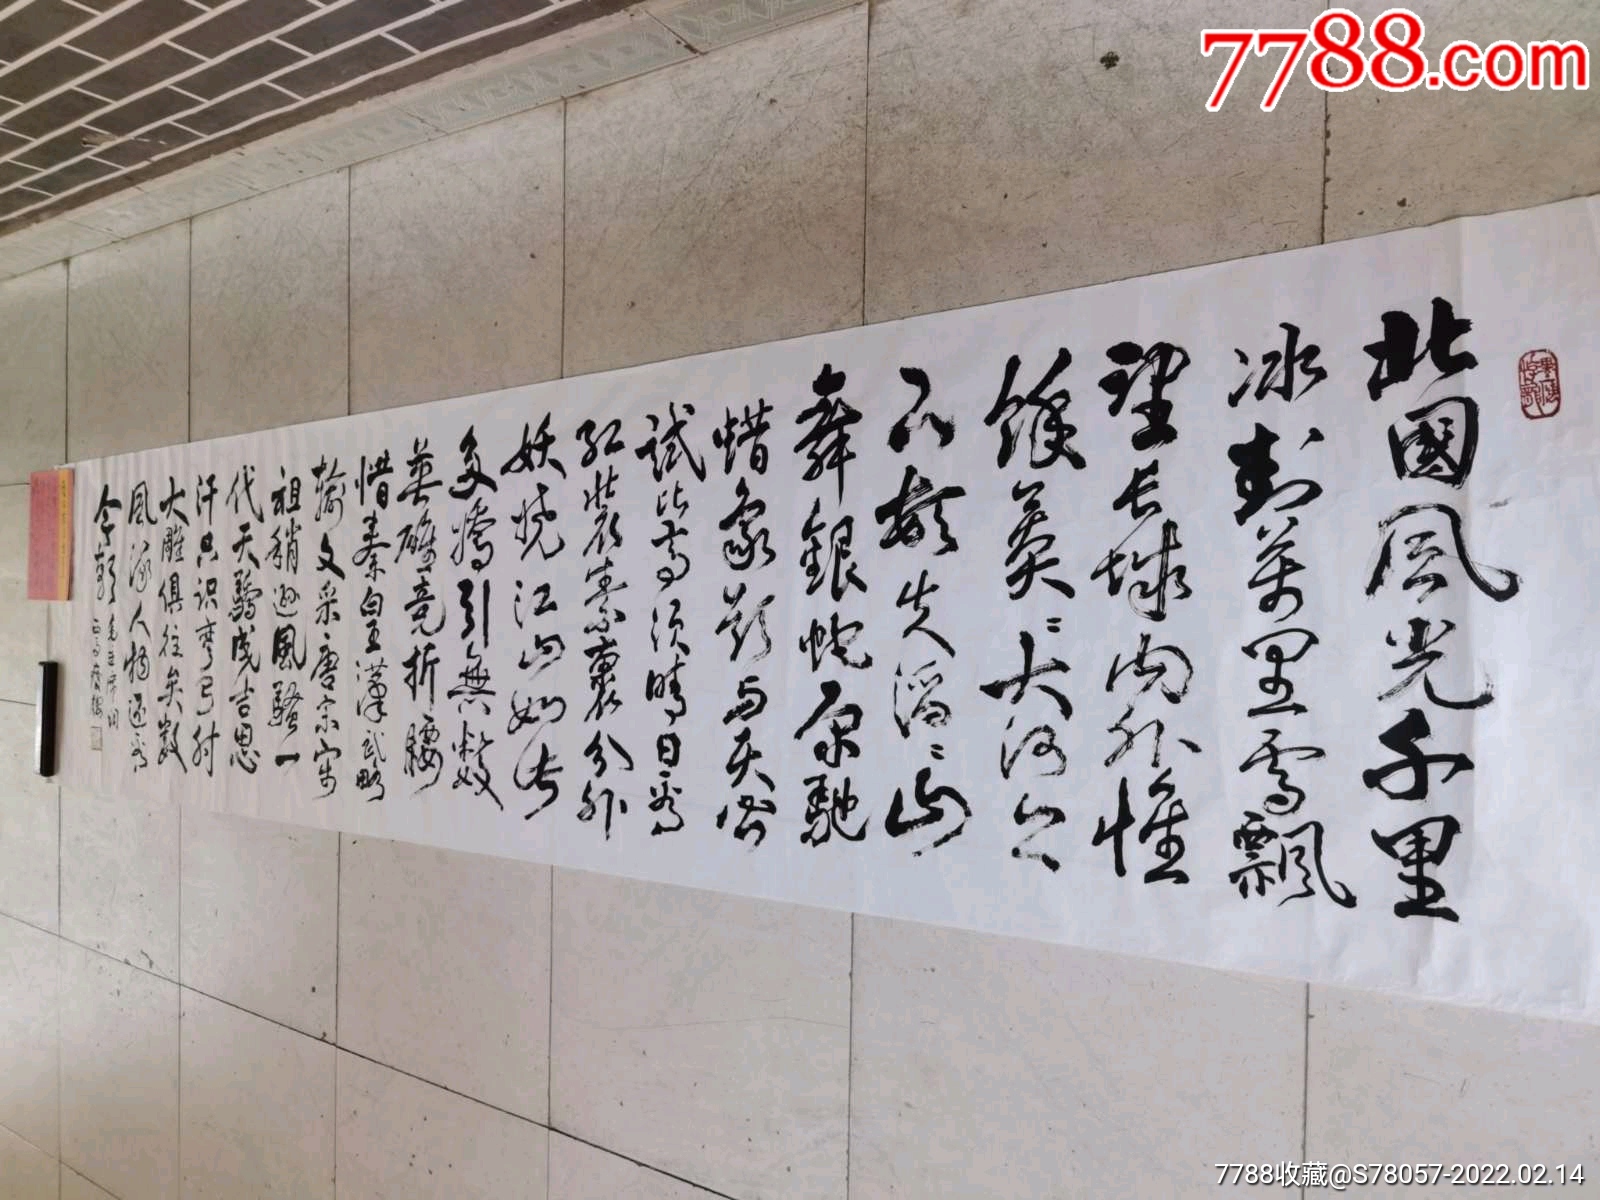 7788.com
北國风光千里
冰封萬里雪飄
望长城内外惟
餘莽々大河上
下顿失滔々山
舞銀蛇原馳
蜡象欲与天公
試比高须晴日看
红装素裹分外
妖娆江山如此
多嬌引無數
英雄竞折腰
惜秦皇漢武略
输文采唐宗宋
祖稍逊風騷一
代天驕成吉思
汗只识弯弓射
大雕俱往矣数
風流人物还看
今朝 毛主席词
7788收藏@S78057-2022.02.14